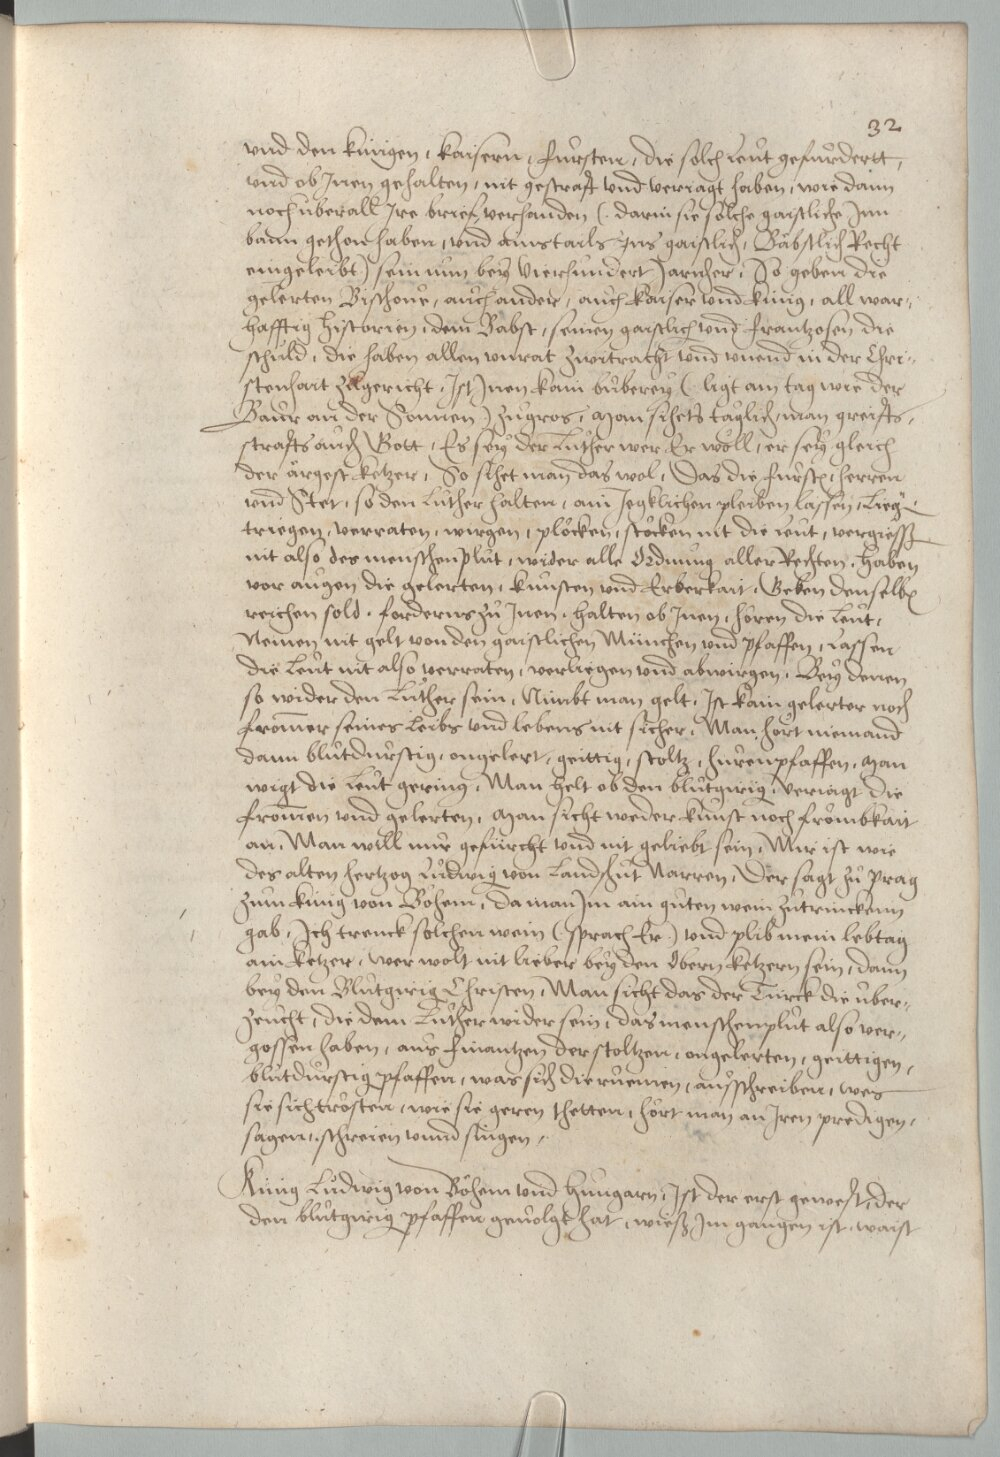 32
vnd den künigen, kaisern, fürsten, die solch leut gefürdertt,
vnd ob Jnen gehalten, nit gestrafft vnd veriagt haben, wie dann
noch uberall Jre brief verhanden (. darin sie solche gaistliche Jnn
bann gethon haben, vnd ainstails Jns gaistlich, Bäbstlich Recht
eingeleibt) sein nun bey Vierhundert Jaren her, So geben die
gelerten Bischove, auch ander, auch kaiser vnd künig, all war-
hafftig historien, dem Babst, seinen gaistlich vnd frantzosen die
schuld, die haben allen vnrat zwitracht vnd vnend in der Chri-
stenhait zugericht, Jst Jnen kain büberey (. ligt am tag wie der
Baur an der Sonnen) zu gros, man sihets täglich, man greifts,
strafts auch Gott, Es sey der Luther wer Er wöll, er sey gleich
der ärgest ketzer, So sihet man das wol, Das die fürsten, herren
vnd Stet, so den Luther halten, ain Jegklichen pleiben lassen, Lieg-
triegen, verraten, wirgen, plöcken, stöcken nit die leut, vergiesst
nit also des menschen plut, wider alle Ordnung aller Rechten, haben
vor augen die gelerten, kunsten vnd Erberkait, Geben denselben
reichen sold, forderns zu Jnen, halten ob Jnen, hören die Leut,
Nemen nit gelt von den gaistlichen München vnd pfaffen, Lassen
die Leut nit also verraten, verliegen vnd abwirgen, Bey denen
so wider den Luther sein, Nimbt man gelt, Jst kain gelerter noch
fromer seines Leibs vnd lebens nit sicher, Man hört niemand
dann blutdurstig, ongelert, geittig, stoltz, hurenpfaffen, man
wigt die Leut gering, Man helt ob den blutgirig, veriagt die
fromen vnd gelerten, man sicht weder kunst noch frombkait
an, Man will nur gefürcht vnd nit geliebt sein, Mir ist wie
des alten hertzog Ludwig von Landshut Narren, Der sagt zu Prag
zum künig von Böhem, da man Jm ain guten wein zutrinckenn
gab, Jch trenck solchen wein (. sprach Er .) vnd plib mein lebtag
ain ketzer, wer wolt nit lieber bey den Obern ketzern sein, dann
bey den Blutgirig Christen, Man sicht das der Türck die uber-
zeucht, die dem Luther wider sein, das menschenplut also ver-
gossen haben, aus finantzen der stoltzen, ongelerten, geittigen,
blutdurstig pfaffen, was sich die ruemen, ausschreiben, wes
sie sich trösten, wie sie geren thetten, hört man an Jren predigen,
sagen, schreien vnnd singen,
Künig Ludwig von Böhem vnd Hungarn, Jst der erst gewest, der
den blutgirig pfaffen gevolgt hat, wiess Jm gangen ist, waist